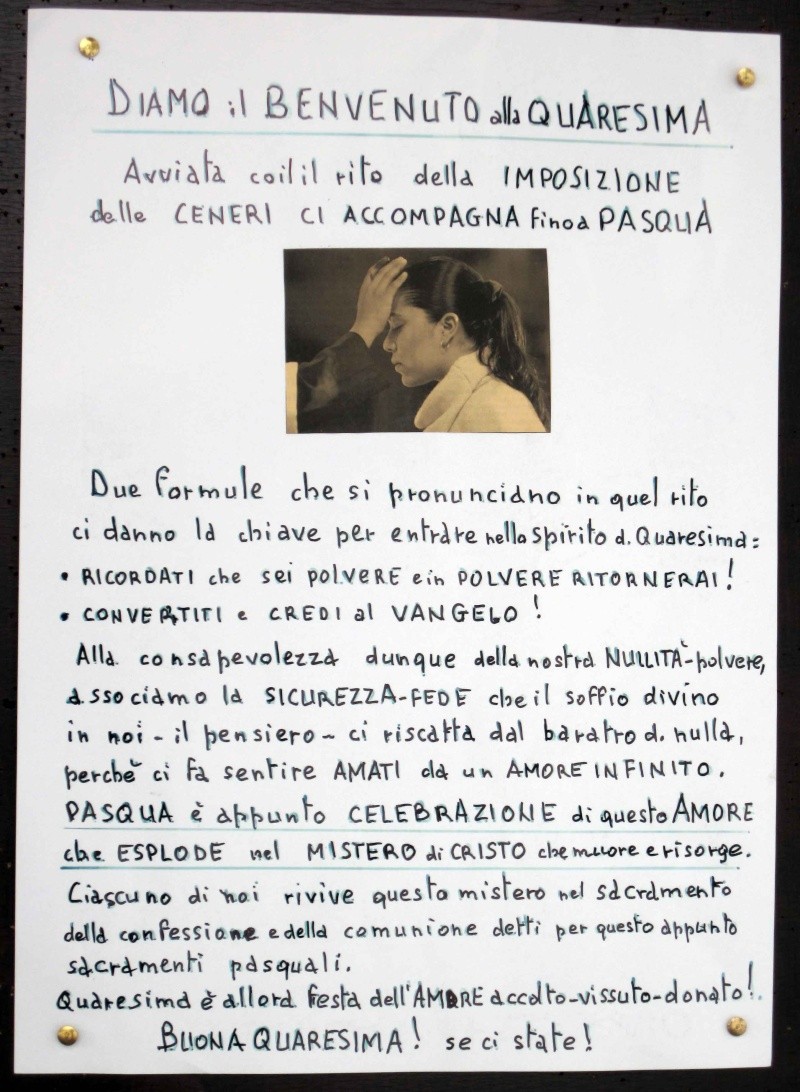 DIAMO il BENVENUTO alla QUARESIMA
Avviata coil il rito della IMPOSIZIONE
delle CENERI CI ACCOMPAGNA fino a PASQUA
Due formule che si pronunciano in quel rito
ci danno la chiave per entrare nello spirito d. Quaresima:
• RICORDATI che sei POLVERE e in POLVERE RITORNERAI!
• CONVERTITI e CREDI al VANGELO!
Alla consapevolezza dunque della nostra NULLITÀ-polvere,
associamo la SICUREZZA-FEDE che il soffio divino
in noi - il pensiero - ci riscatta dal baratro d. nulla,
perchè ci fa sentire AMATI da un AMORE INFINITO.
PASQUA è appunto CELEBRAZIONE di questo AMORE
che ESPLODE nel MISTERO di CRISTO che muore e risorge.
Ciascuno di noi rivive questo mistero nel sacramento
della confessione e della comunione detti per questo appunto
sacramenti pasquali.
Quaresima è allora festa dell'AMORE accolto-vissuto-donato!.
BUONA QUARESIMA! se ci state!